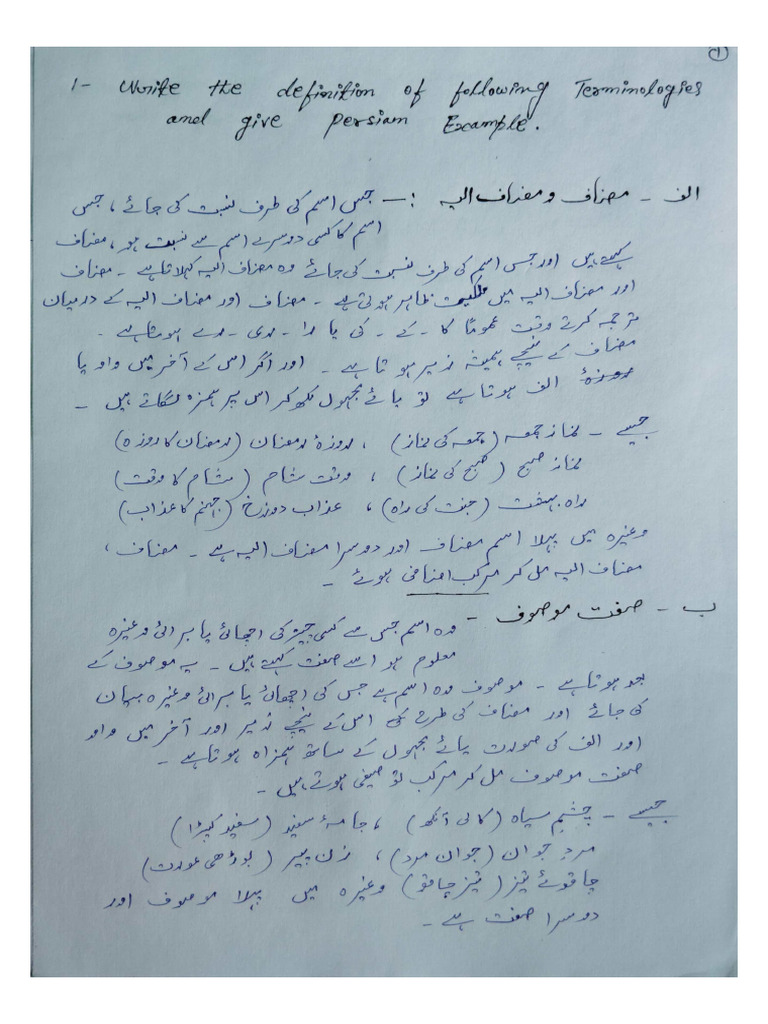 ①
1- Write the definition of following Terminologies
and give Persian Example.
الف - مضاف و مضاف الیہ :- جس اسم کی طرف نسبت کی جائے ، جس
اسم کا کسی دوسرے اسم سے نسبت ہو ، مضاف
کہتے ہیں اور جس اسم کی طرف نسبت کی جائے وہ مضاف الیہ کہلاتا ہے - مضاف
اور مضاف الیہ میں ملکیت ظاہر ہوتی ہے - مضاف اور مضاف الیہ کے درمیان
ترجمہ کرتے وقت عموماً کا - کے - کی یا را - ری - رے ہوتا ہے -
مضاف کے نیچے ہمیشہ زیر ہوتا ہے - اور اگر اس کے آخر میں واو یا
الف ہوتا ہے تو یائے مجہول لکھ کر اس پر ہمزہ لگاتے ہیں -
جیسے - نماز جمعہ (جمعہ کی نماز) ، روزۂ رمضان (رمضان کا روزہ)
نماز صبح (صبح کی نماز) ، وقت شام (شام کا وقت)
راہ بہشت (جنت کی راہ) ، عذاب دوزخ (جہنم کا عذاب)
وغیرہ میں پہلا اسم مضاف اور دوسرا مضاف الیہ ہے - مضاف ،
مضاف الیہ مل کر مرکب اضافی ہوئے -
ب - صفت موصوف - وہ اسم جس سے کسی چیز کی اچھائی یا برائی وغیرہ
معلوم ہو اسے صفت کہتے ہیں - یہ موصوف کے
جو ہوتا ہے - موصوف وہ اسم ہے جس کی اچھائی یا برائی وغیرہ بیان
کی جائے اور مضاف کی طرح اس کے نیچے زیر اور آخر میں واو
اور الف کی صورت یائے مجہول کے ساتھ ہمزاہ ہوتا ہے -
صفت موصوف مل کر مرکب تو صیفی ہوتے ہیں -
جیسے - چشمِ سیاہ (کالی آنکھ) ، جامۂ سفید (سفید کپڑا)
مردِ جوان (جوان مرد) ، زن پیر (بوڑھی عورت)
چاقوئے تیز (تیز چاقو) وغیرہ میں پہلا موصوف اور
دوسرا صفت ہے -